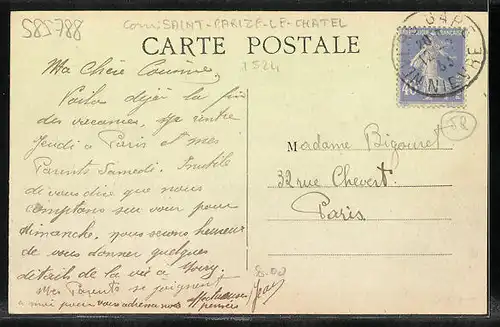 585788
Com: SAINT-PARIZE-LE-CHATEL
CARTE POSTALE
1524
GARE
NIEVRE
Ma Chère Cousine,
Voilà déjà la fin
des vacances. Je rentre
Jeudi à Paris et mes
Parents Samedi. Inutile
de vous dire que nous
comptons sur vous pour
dimanche. nous serons heureux
de vous donner quelques
détails de la vie à Ivry.
Mes Parents se joignent
à moi pour vous adresser nos affectueuses
pensées
Jean
8.00
58
Madame Bigouret
32 rue Chevert
Paris